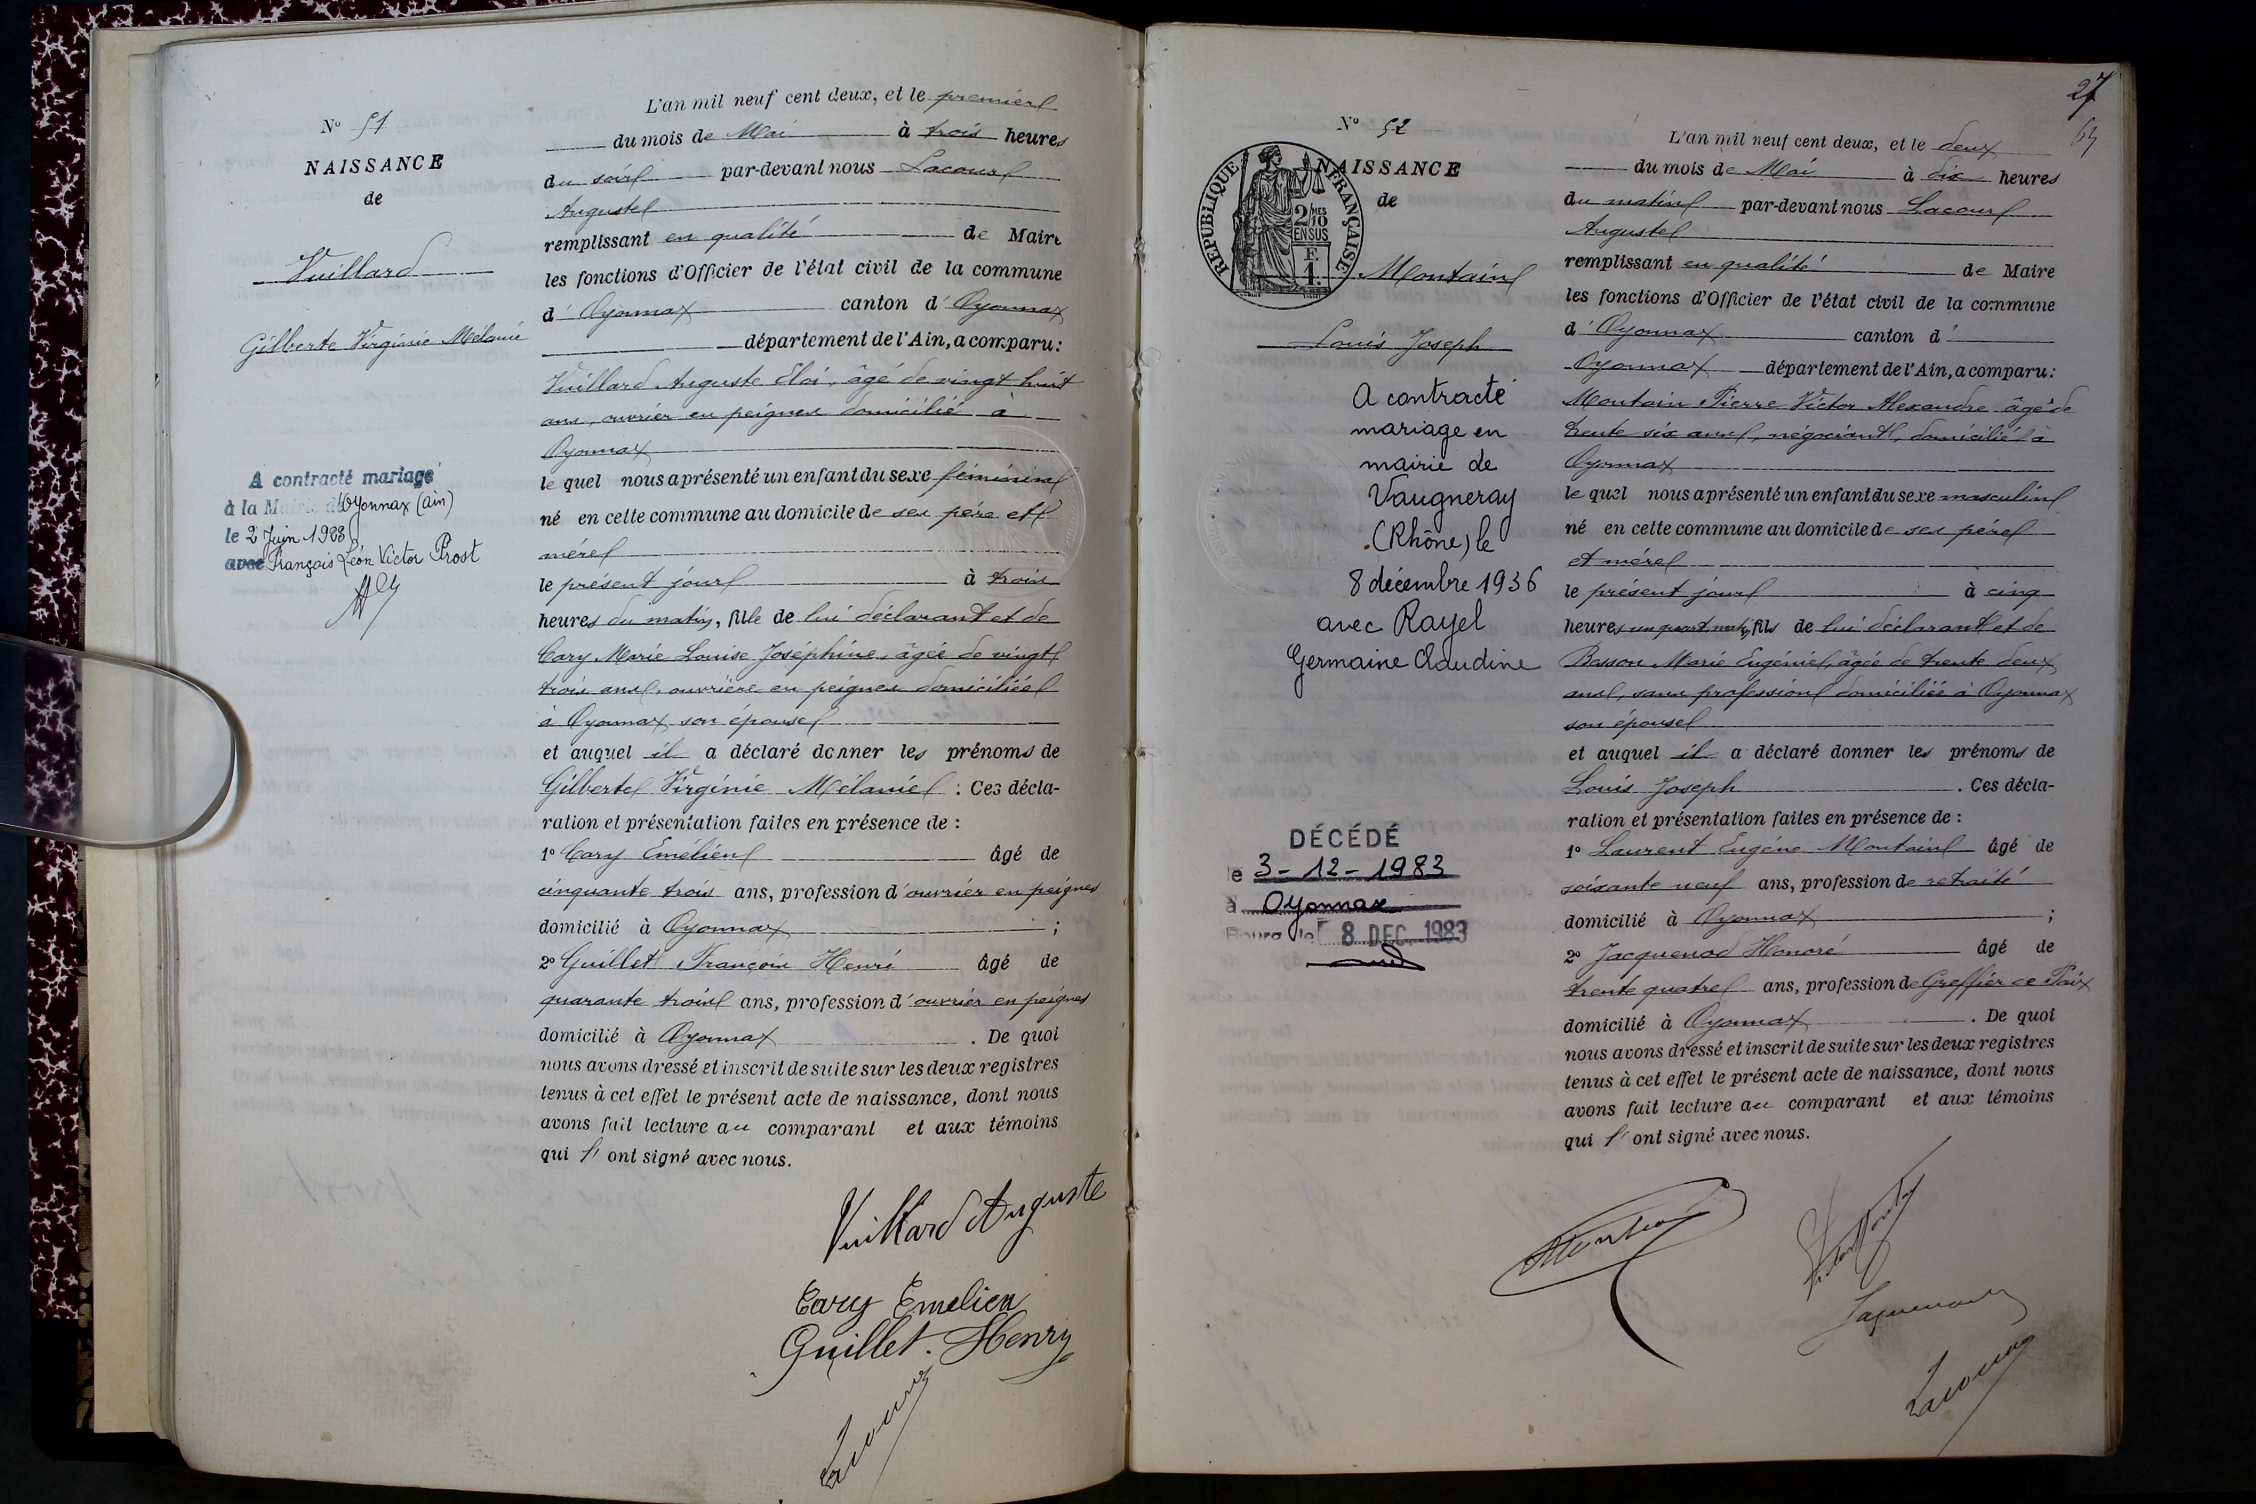 N° 51
NAISSANCE
de
Vuillard
Gilberte Virginie Mélanie
A contracté mariage
à la Mairie d'Oyonnax (Ain)
le 2 Juin 1923
avec François Léon Victor Prost
L'an mil neuf cent deux, et le premier
du mois de Mai à trois heures
du soir par-devant nous Lacour
Auguste
remplissant en qualité de Maire
les fonctions d'Officier de l'état civil de la commune
d'Oyonnax canton d'Oyonnax
département de l'Ain, a comparu:
Vuillard Auguste Eloi, âgé de vingt huit
ans, ouvrier en peignes domicilié à
Oyonnax
le quel nous a présenté un enfant du sexe féminin
né en cette commune au domicile de ses père et
mère
le présent jour à trois
heures du matin, fille de lui déclarant et de
Cary Marie Louise Joséphine, âgée de vingt
trois ans, ouvrière en peignes domiciliée
à Oyonnax son épouse
et auquel il a déclaré donner les prénoms de
Gilberte Virginie Mélanie. Ces décla-
ration et présentation faites en présence de :
1° Cary Emélien âgé de
cinquante trois ans, profession d'ouvrier en peignes
domicilié à Oyonnax ;
2° Guillet François Henri âgé de
quarante trois ans, profession d'ouvrier en peignes
domicilié à Oyonnax . De quoi
nous avons dressé et inscrit de suite sur les deux registres
tenus à cet effet le présent acte de naissance, dont nous
avons fait lecture au comparant et aux témoins
qui l'ont signé avec nous.
Vuillard Auguste
Cary Emelien
Guillet. Henry
Lacour
27
N° 52
NAISSANCE
de
REPUBLIQUE FRANÇAISE
2/10 MES
EN SUS
F.
1.
Montain
Louis Joseph
A contracté
mariage en
mairie de
Vaugneray
(Rhône) le
8 décembre 1936
avec Rayel
Germaine Claudine
DÉCÉDÉ
le 3-12-1983
à Oyonnax
Bourg le 8 DEC. 1983
L'an mil neuf cent deux, et le deux
du mois de Mai à dix heures
du matin par-devant nous Lacour
Auguste
remplissant en qualité de Maire
les fonctions d'Officier de l'état civil de la commune
d'Oyonnax canton d'
Oyonnax département de l'Ain, a comparu:
Montain Pierre Victor Alexandre âgé de
trente six ans, négociant, domicilié à
Oyonnax
le quel nous a présenté un enfant du sexe masculin
né en cette commune au domicile de ses père
et mère
le présent jour à cinq
heures un quart matin, fils de lui déclarant et de
Basson Marie Eugénie, âgée de trente deux
ans, sans profession domiciliée à Oyonnax
son épouse
et auquel il a déclaré donner les prénoms de
Louis Joseph . Ces décla-
ration et présentation faites en présence de :
1° Laurent Eugène Montain âgé de
soixante neuf ans, profession de retraité
domicilié à Oyonnax ;
2° Jacquenod Honoré âgé de
trente quatre ans, profession de Greffier de Paix
domicilié à Oyonnax . De quoi
nous avons dressé et inscrit de suite sur les deux registres
tenus à cet effet le présent acte de naissance, dont nous
avons fait lecture au comparant et aux témoins
qui l'ont signé avec nous.
Montain
Jacquenod
Lacour